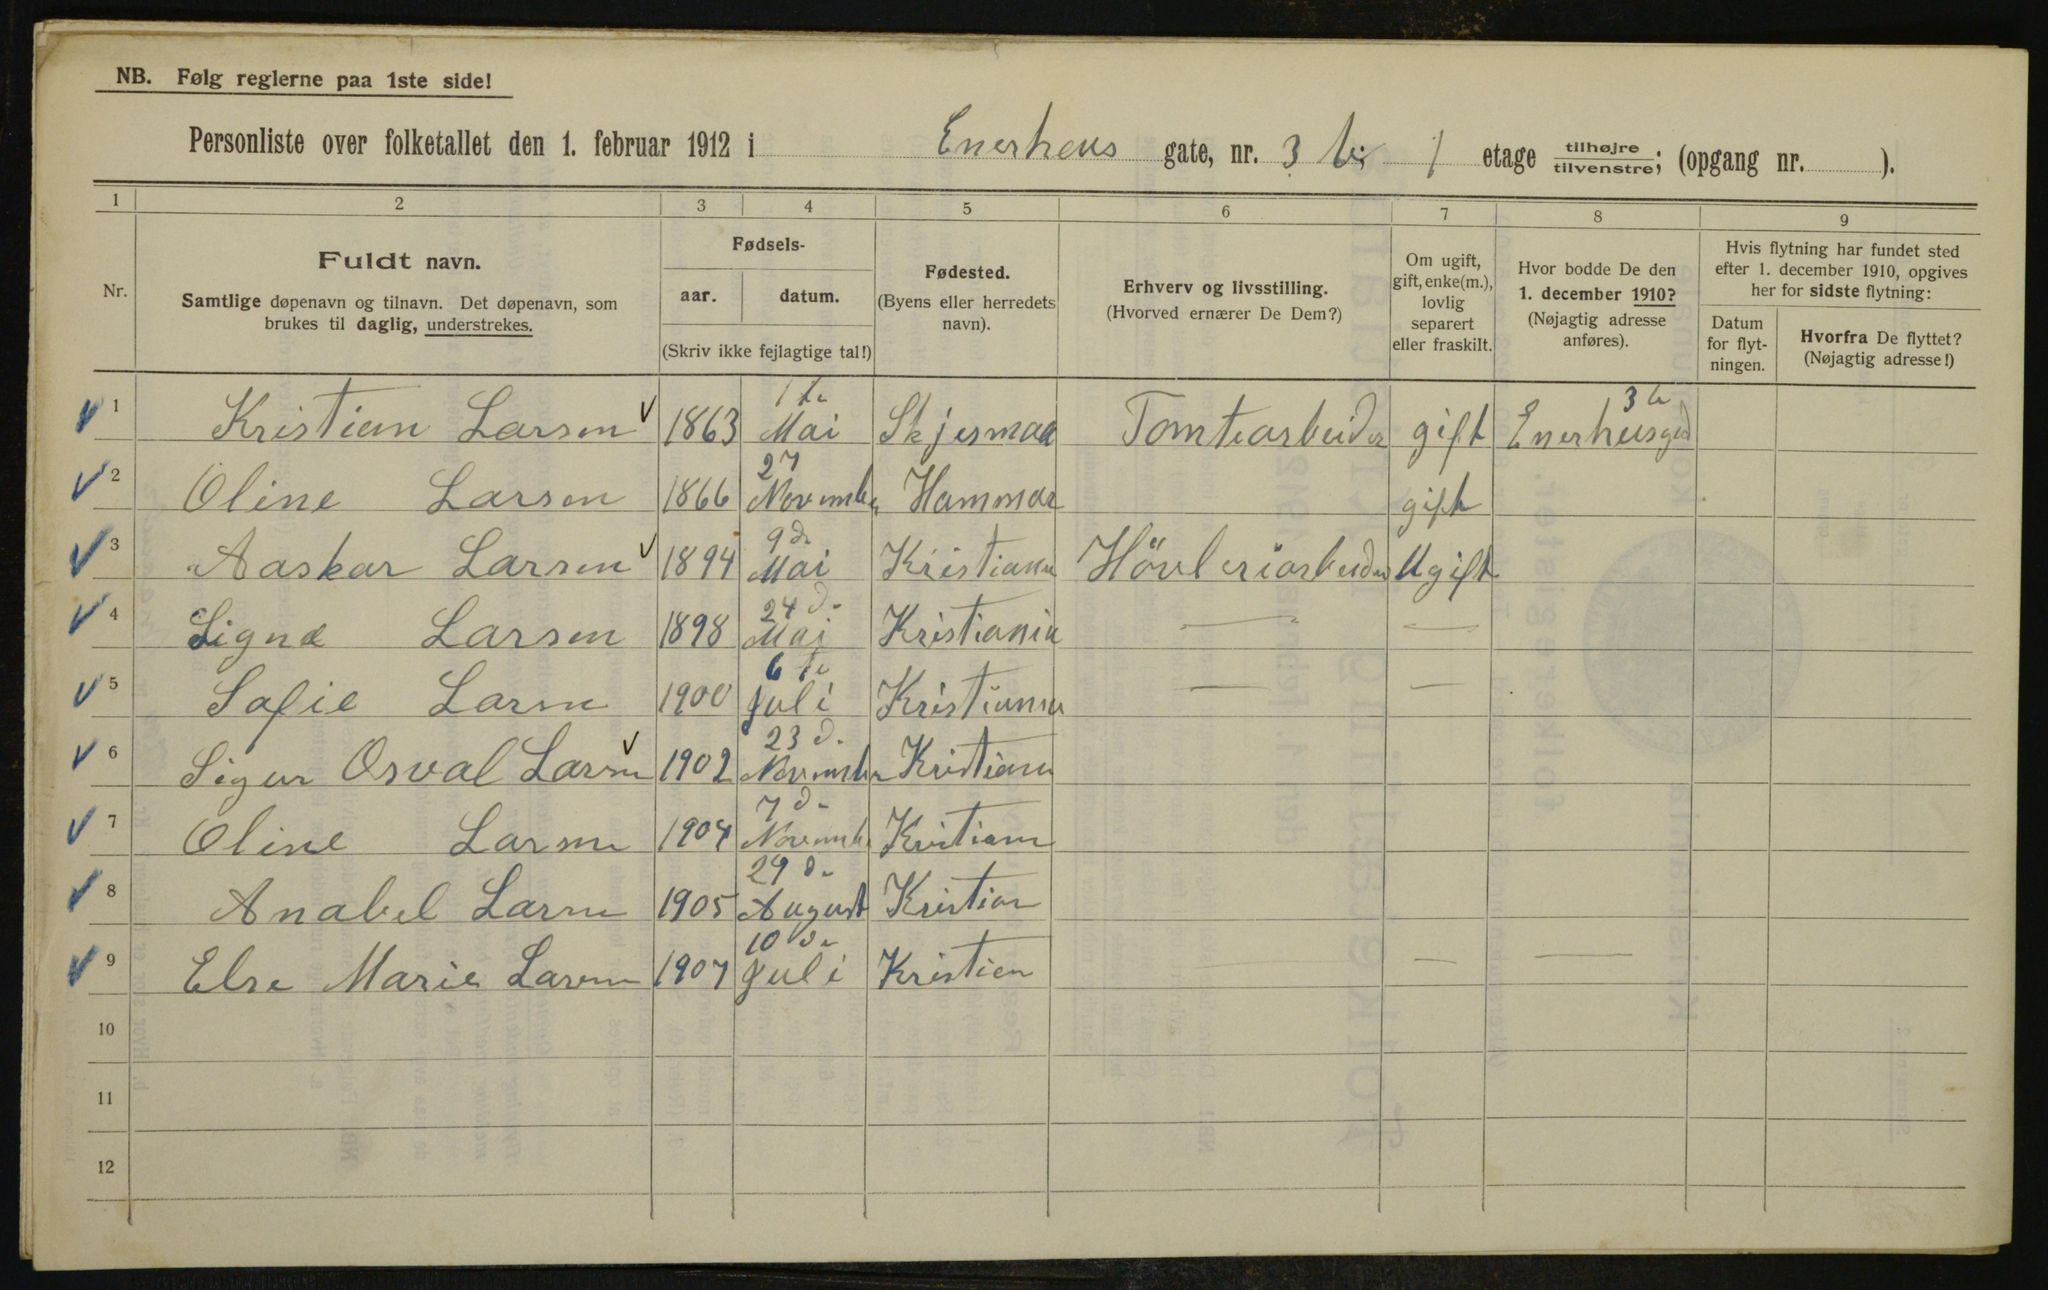 NB. Følg reglerne paa 1ste side!
Personliste over folketallet den 1. februar 1912 i Enerheus gate, nr. 3 b; 1 etage tilhøjre/tilvenstre; (opgang nr. ).
1 2 3 4 5 6 7 8 9
Nr.
Fuldt navn.
Samtlige døpenavn og tilnavn. Det døpenavn, som
brukes til daglig, understrekes.
Fødsels-
aar. datum.
(Skriv ikke fejlagtige tal!)
Fødested.
(Byens eller herredets
navn).
Erhverv og livsstilling.
(Hvorved ernærer De Dem?)
Om ugift,
gift, enke(m.),
lovlig
separert
eller fraskilt.
Hvor bodde De den
1. december 1910?
(Nøjagtig adresse
anføres).
Hvis flytning har fundet sted
efter 1. december 1910, opgives
her for sidste flytning:
Datum
for flyt-
ningen.
Hvorfra De flyttet?
(Nøjagtig adresse!)
1 Kristian Larsen 1863 1te Mai Skjesmaa Tomtearbeider gift Enerheusgd 3
2 Oline Larsen 1866 27 November Hammar gift
3 Aaskar Larsen 1894 9de Mai Kristiania Hövleriarbeider Ugift
4 Signe Larsen 1898 24 d. Mai Kristiania — —
5 Sofie Larsen 1900 6te Juli Kristiania — —
6 Sigur Osval Larsen 1902 23 d. November Kristiania
7 Oline Larsen 1904 7 d. November Kristiania
8 Anabel Larsen 1905 29 d. August Kristian
9 Else Marie Larsen 1907 10 de Juli Kristian — — —
10
11
12